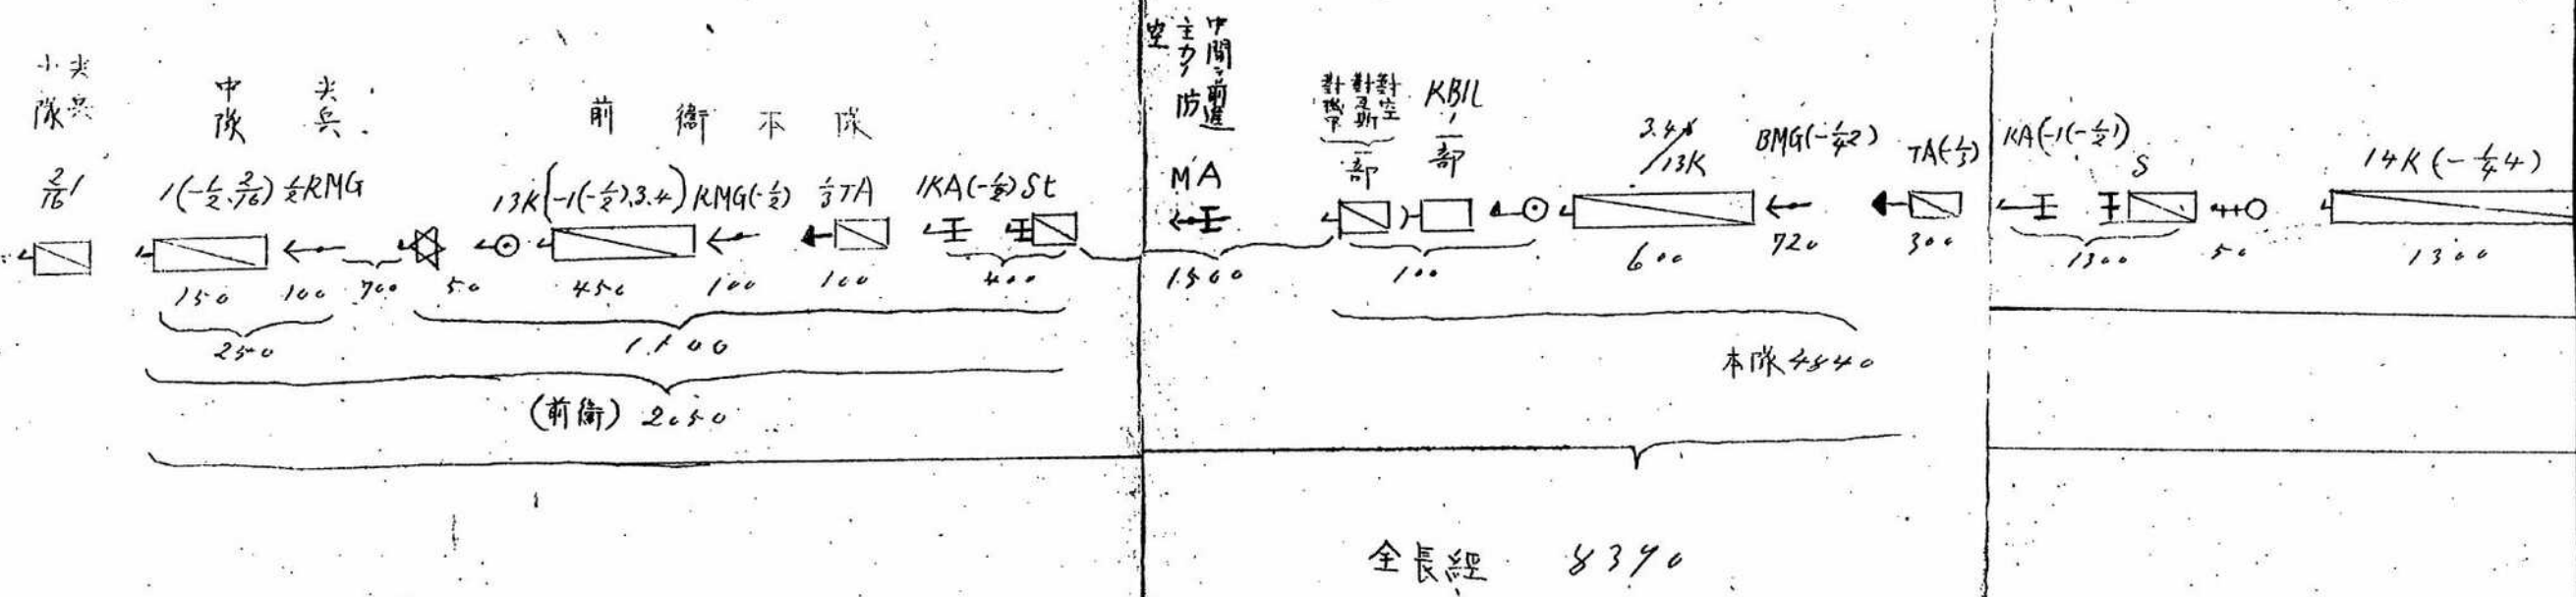 尖兵
小隊
尖兵
中隊
前衞本隊
中間ヲ前進
主力ノ防
空
對空
一部
KBIL
一部
2/16 1
1(-1/2.2/16) 1/2RMG
13K(-1(-1/2).3.4) RMG(-1/2) 1/3TA 1KA(-1/2) St
MA
3.4/13K
BMG(-1/4 2)
TA(-1/3)
KA(-1(-1/2))
S
14K(-1/4 4)
150 100 700 50 450 100 100 400 1500 100 600 720 300 1300 50 1300
250
1.100
本隊 4840
(前衞) 2050
全長經 8390